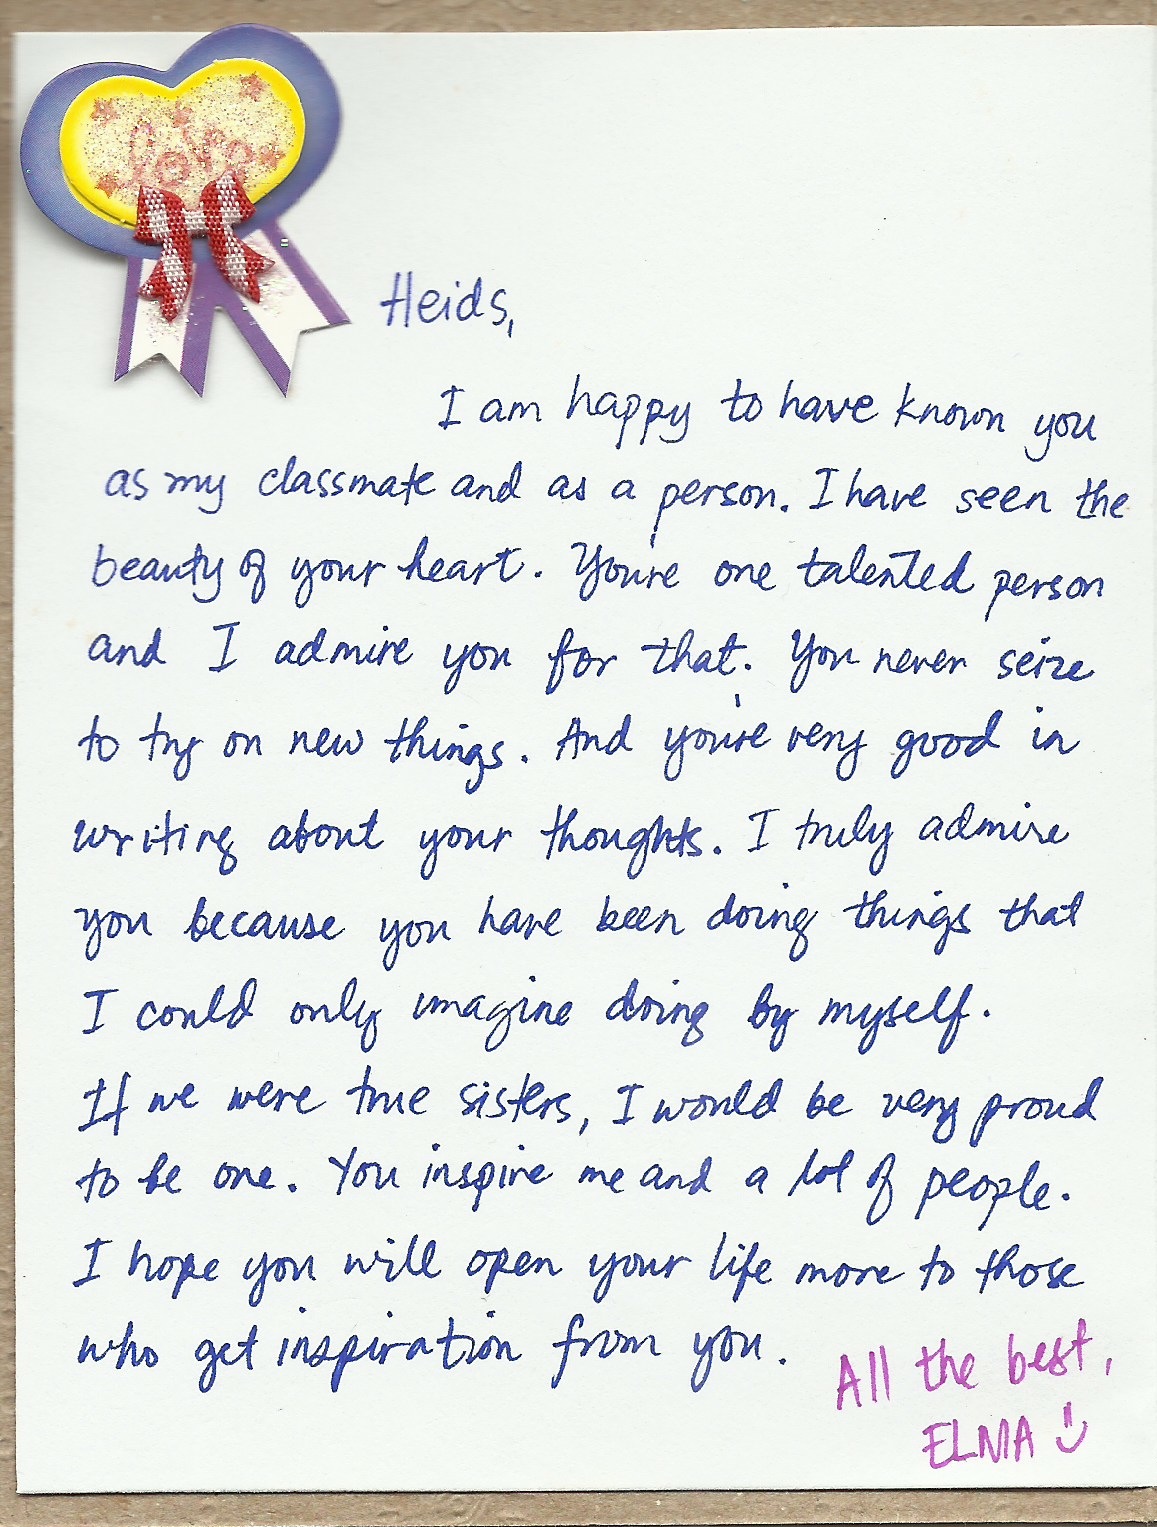 love
Heids,
I am happy to have known you
as my classmate and as a person. I have seen the
beauty of your heart. You're one talented person
and I admire you for that. You never seize
to try on new things. And you're very good in
writing about your thoughts. I truly admire
you because you have been doing things that
I could only imagine doing by myself.
If we were true sisters, I would be very proud
to be one. You inspire me and a lot of people.
I hope you will open your life more to those
who get inspiration from you.
All the best,
ELMA